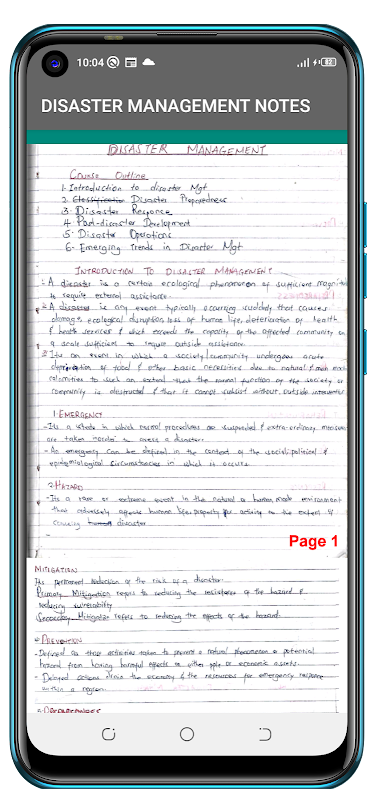 10:04
82
DISASTER MANAGEMENT NOTES
DISASTER MANAGEMENT
Course Outline
1. Introduction to disaster Mgt
2. Classification Disaster Preparedness
3. Disaster Response
4. Post-disaster Development
5. Disaster Operations
6. Emerging Trends in Disaster Mgt
INTRODUCTION TO DISASTER MANAGEMENT
1. A disaster is a certain ecological phenomenon of sufficient magnitude
to require external assistance.
2. A disaster is any event typically occurring suddenly that causes
damage, ecological disruption, loss of human life, deterioration of health
& health services & which exceeds the capacity of the affected community on
a scale sufficient to require outside assistance.
3. Its an event in which a society/community undergoes acute
deprivation of food & other basic necessities due to natural & man made
calamities to such an extent that the normal function of the society or
community is obstructed & that it cannot subsist without outside intervention
1. EMERGENCY
- Its a state in which normal procedures are suspended & extra-ordinary measures
are taken to a disaster.
- An emergency can be defined in the context of the social, political &
epidemiological circumstances in which it occurs.
2. HAZARD
- Its a rare or extreme event in the natural or human made environment
that adversely affects human life, property or activity to the extent of
causing human disaster
-
Page 1
MITIGATION
Its permanent reduction of the risk of a disaster.
Primary Mitigation refers to reducing the resistance of the hazard &
reducing vulnerability.
Secondary Mitigation refers to reducing the effects of the hazard.
PREVENTION
- Defined as those activities taken to prevent a natural phenomenon or potential
hazard from having harmful effects on either pple or economic assets.
- Delayed actions drain the economy & the resources for emergency response
within a region.
PREPAREDNESS